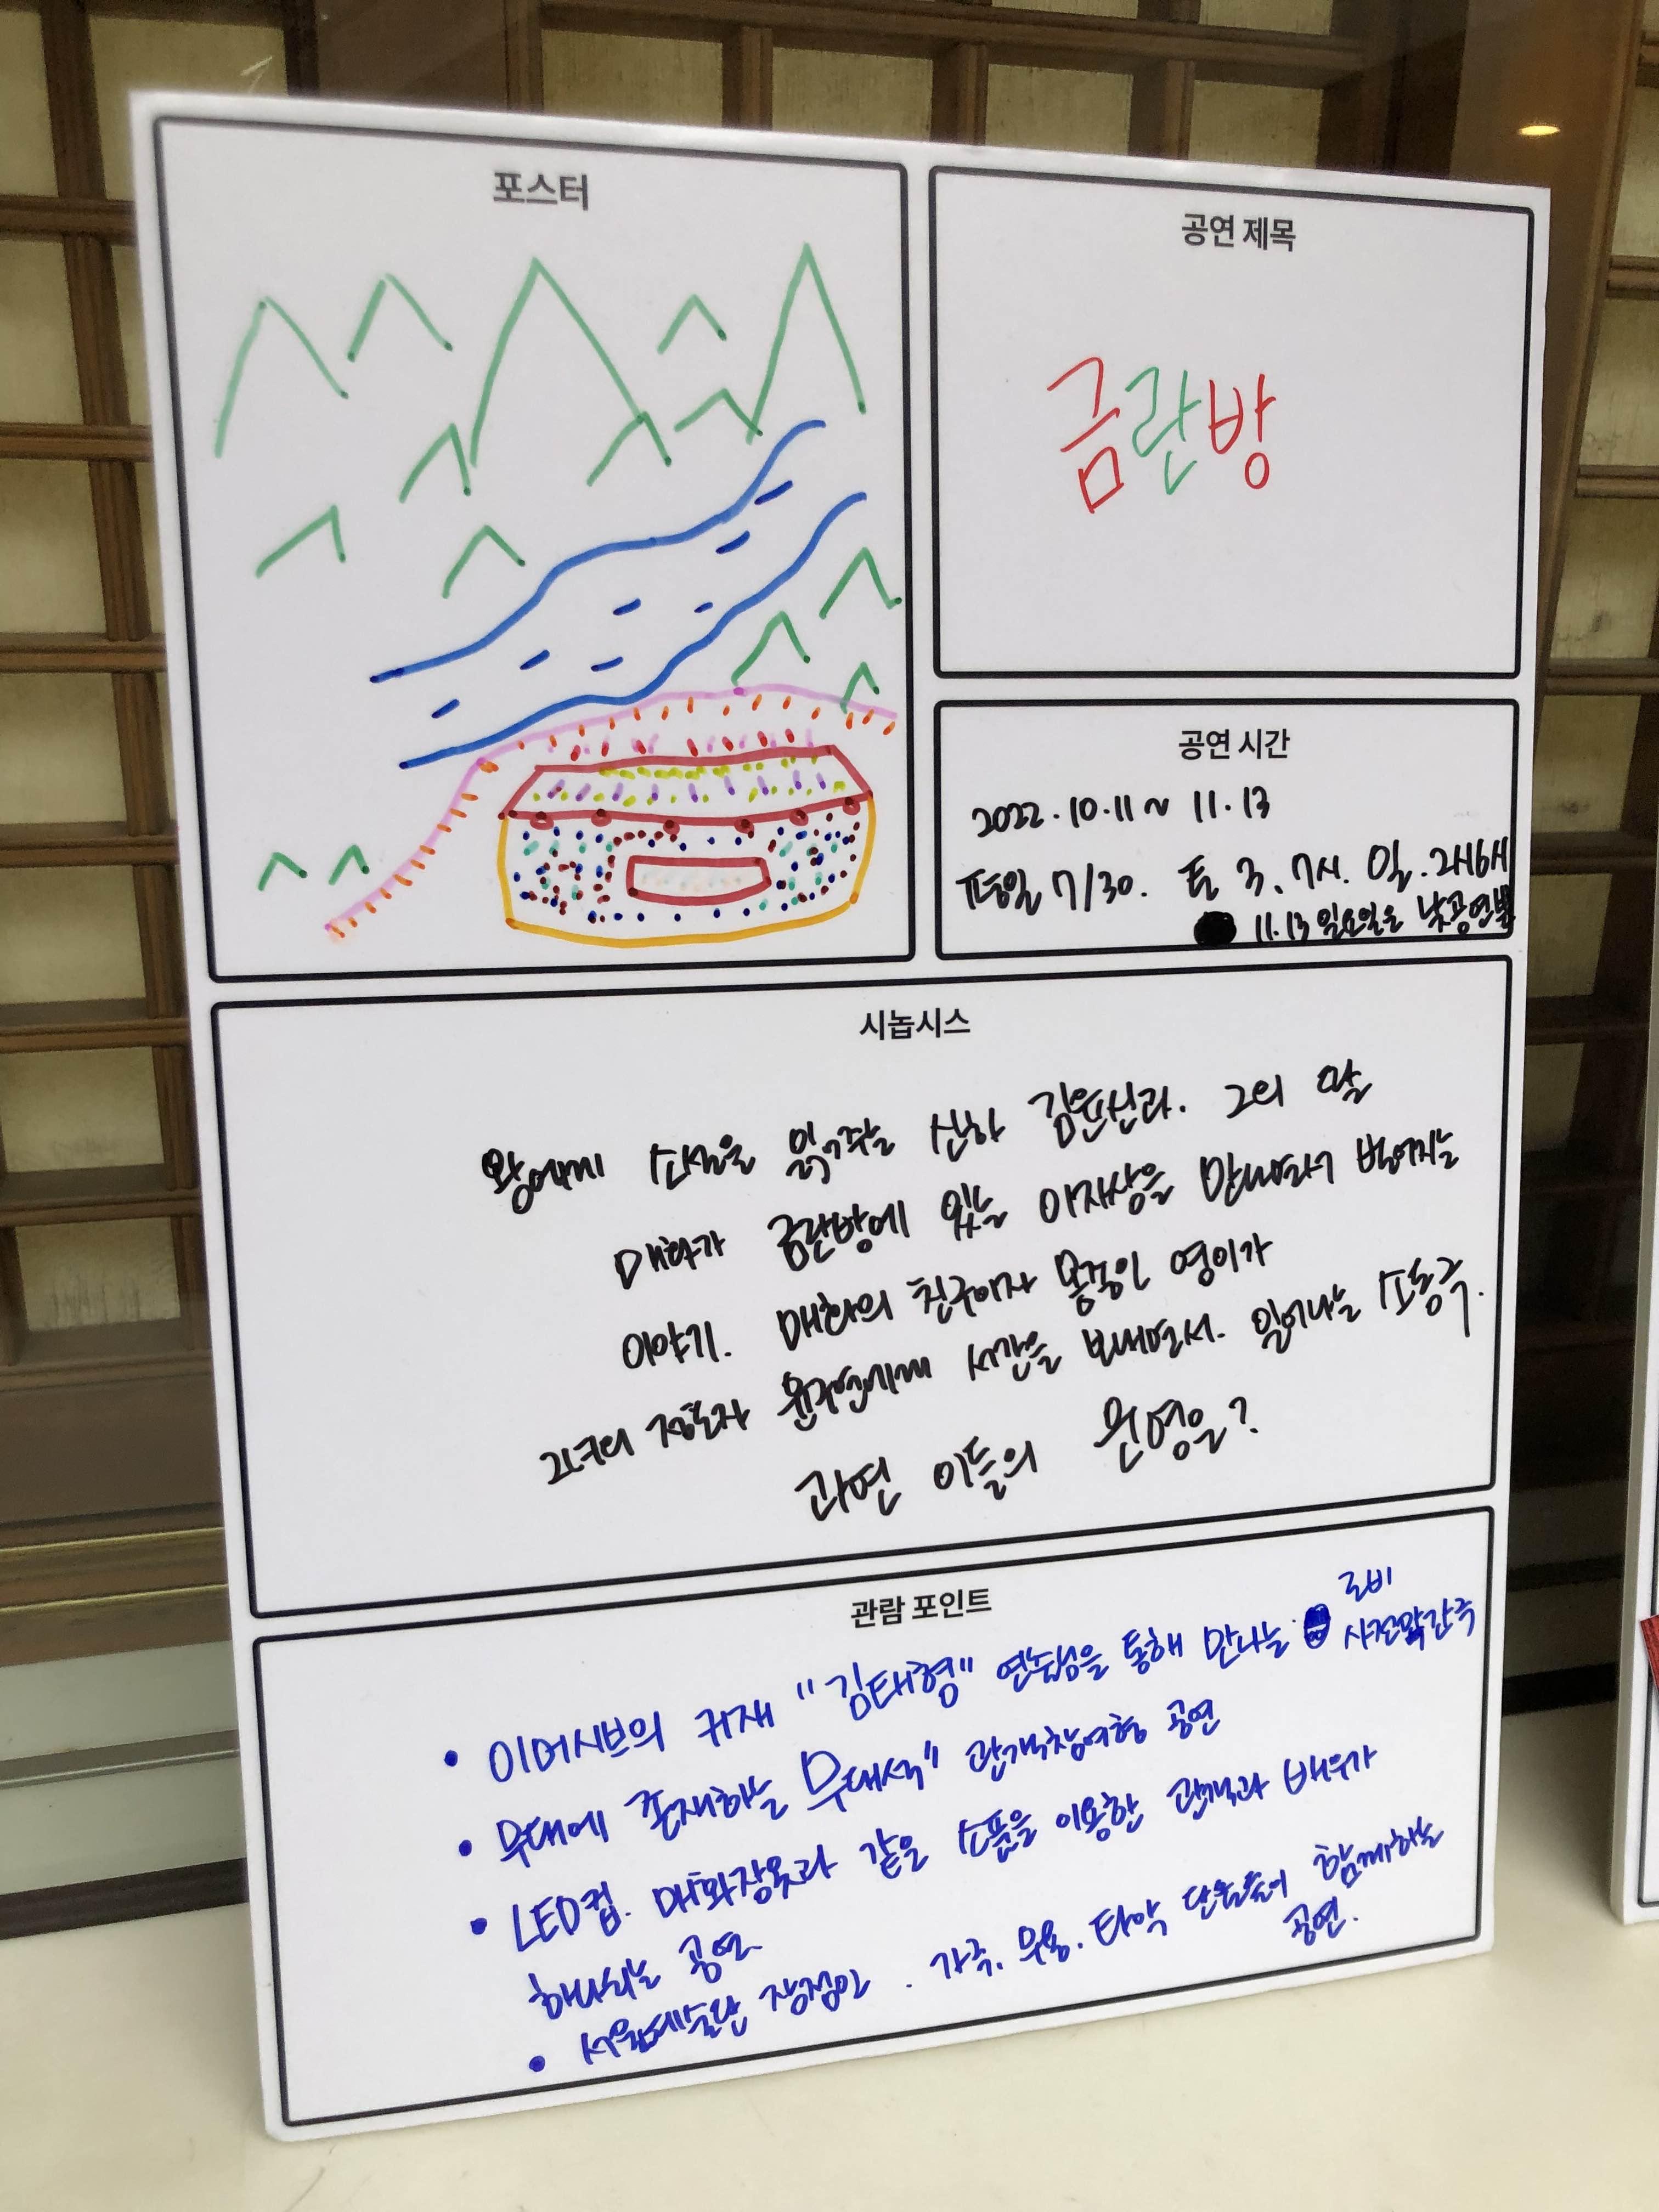 포스터
공연 제목
금란방
공연 시간
2022.10.11 ~ 11.13
평일 7/30. 토 3, 7시. 일. 2시6시
11.13 일요일은 낮공연뿐
시놉시스
왕에게 소설을 읽어주는 신하 김윤신과. 그의 딸
매화가 금란방에 있는 이자상을 만나면서 벌어지는
이야기. 매화의 친구이자 몸종인 영이가
그녀의 정혼자 윤구연에게 시간을 보내면서. 일어나는 소동극.
과연 이들의 운명은?
관람 포인트
• 이머시브의 귀재 "김태형" 연출님을 통해 만나는 로비 사전막간극
• 무대에 존재하는 무대석" 관객참여형 공연
• LED컵. 매화장옷과 같은 소품을 이용한 관객과 배우가
하나되는 공연
• 서울예술단 장점인 . 가극. 무용. 타악 단원들이 함께하는
공연.